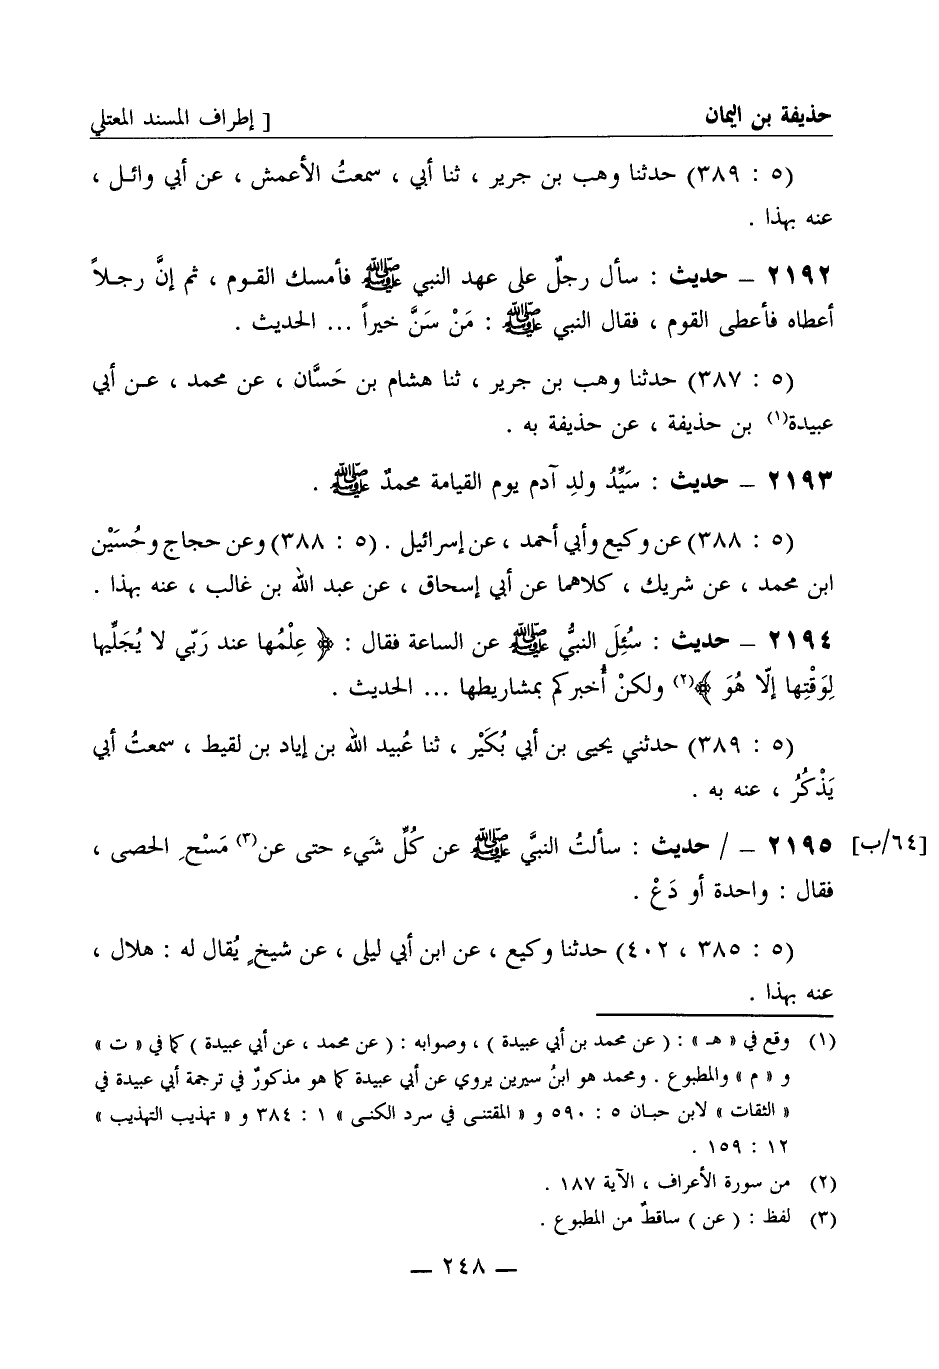 حذيفة بن اليمان
[ إطراف المسند المعتلي
(٥ : ٣٨٩) حدثنا وهب بن جرير ، ثنا أبي ، سمعتُ الأعمش ، عن أبي وائل ،
عنه بهذا .
٢١٩٢ ـ حديث : سأل رجلٌ على عهد النبي ﷺ فأمسك القوم ، ثم إنَّ رجلاً
أعطاه فأعطى القوم ، فقال النبي ﷺ : مَنْ سَنَّ خيراً ... الحديث .
(٥ : ٣٨٧) حدثنا وهب بن جرير ، ثنا هشام بن حَسَّان ، عن محمد ، عن أبي
عبيدة(١) بن حذيفة ، عن حذيفة به .
٢١٩٣ ـ حديث : سَيِّدُ ولدِ آدم يوم القيامة محمدٌ ﷺ .
(٥ : ٣٨٨) عن وكيع وأبي أحمد ، عن إسرائيل . (٥ : ٣٨٨) وعن حجاج وحُسَيْن
ابن محمد ، عن شريك ، كلاهما عن أبي إسحاق ، عن عبد الله بن غالب ، عنه بهذا .
٢١٩٤ ـ حديث : سُئِلَ النبيُّ ﷺ عن الساعة فقال : ﴿ عِلْمُها عند رَبّي لا يُجَلِّيها
لِوَقْتِها إلّا هُوَ ﴾(٢) ولكنْ أُخبركم بمشاريطها ... الحديث .
(٥ : ٣٨٩) حدثني يحيى بن أبي بُكَيْر ، ثنا عُبيد الله بن إياد بن لقيط ، سمعتُ أبي
يَذْكُرُ ، عنه به .
٢١٩٥ ـ / حديث : سألتُ النبيَّ ﷺ عن كُلِّ شَيء حتى عن(٣) مَسْحِ الحصى ، [٦٤/ب]
فقال : واحدة أو دَعْ .
(٥ : ٣٨٥ ، ٤٠٢) حدثنا وكيع ، عن ابن أبي ليلى ، عن شيخٍ يُقال له : هلال ،
عنه بهذا .
(١) وقع في « هـ » : ( عن محمد بن أبي عبيدة ) ، وصوابه : ( عن محمد ، عن أبي عبيدة ) كما في « ت »
و « م » والمطبوع . ومحمد هو ابنُ سيرين يروي عن أبي عبيدة كما هو مذكورٌ في ترجمة أبي عبيدة في
« الثقات » لابن حبان ٥ : ٥٩٠ و « المقتنى في سرد الكنى » ١ : ٣٨٤ و « تهذيب التهذيب »
١٢ : ١٥٩ .
(٢) من سورة الأعراف ، الآية ١٨٧ .
(٣) لفظ : ( عن ) ساقطٌ من المطبوع .
ـ ٢٤٨ ـ